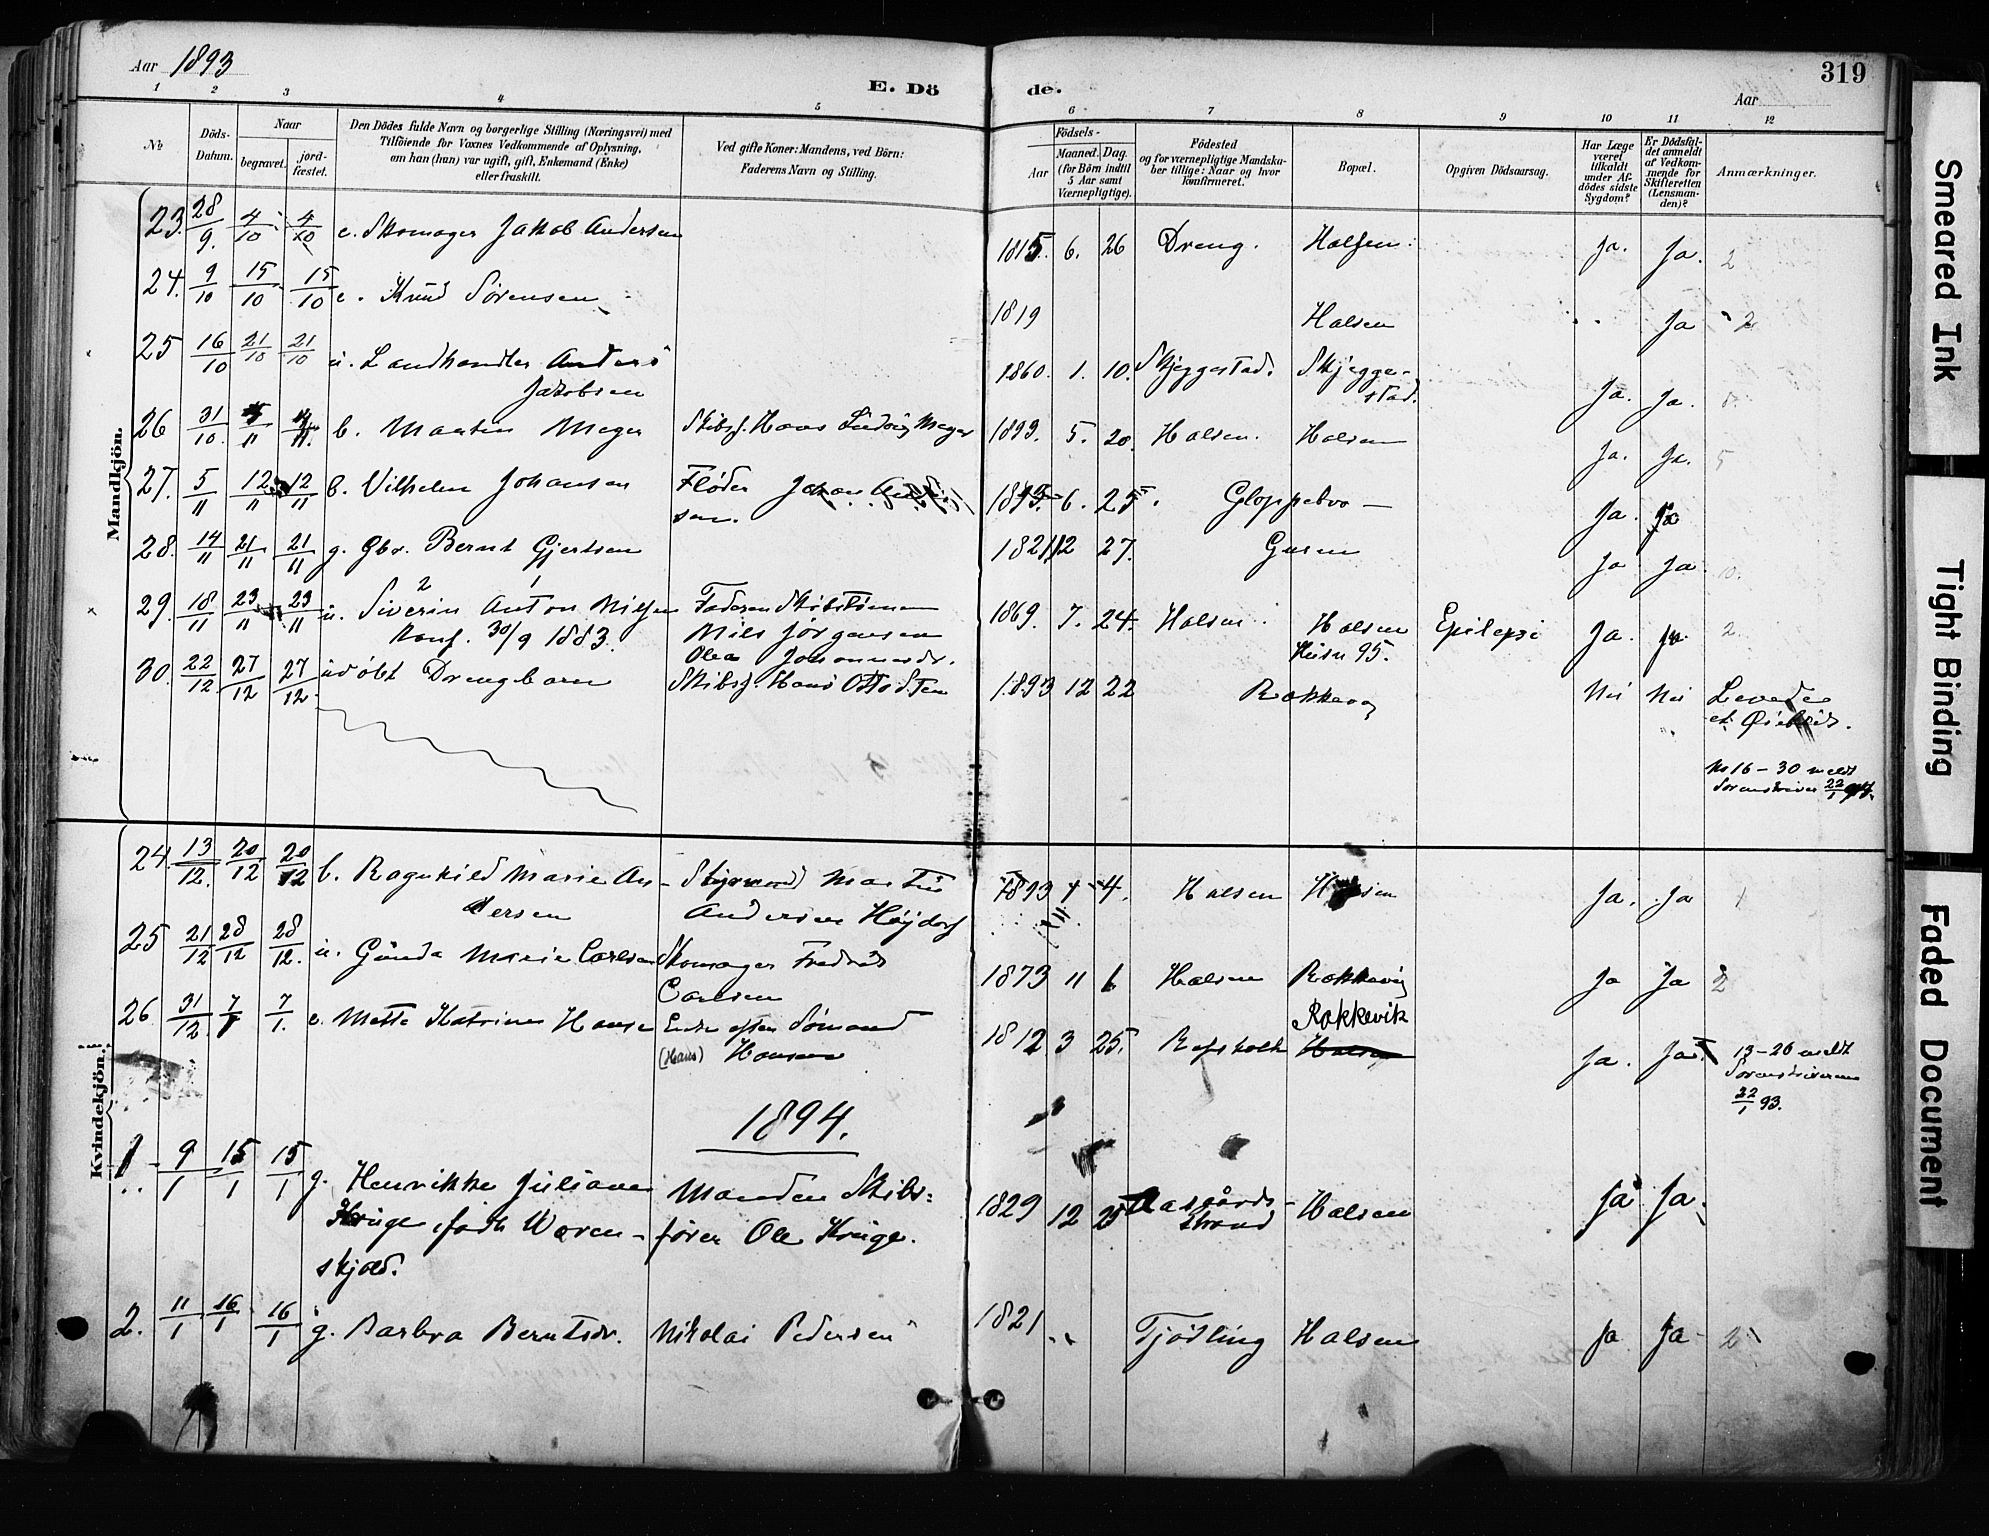 Aar 1893
E. Döde.
319
Aar
1 2 3 4 5 6 7 8 9 10 11 12
No
Döds-Datum.
Naar
begravet.
jordfæstet.
Den Dödes fulde Navn og borgerlige Stilling (Næringsvei) med
Tilföiende for Voxnes Vedkommende af Oplysning,
om han (hun) var ugift, gift, Enkemand (Enke)
eller fraskilt.
Ved gifte Koner: Mandens, ved Börn:
Faderens Navn og Stilling.
Födsels-
Aar
Maaned. Dag.
(for Börn indtil
5 Aar samt
Værnepligtige).
Födested
og for værnepligtige Mandskaber tillige: Naar og hvor
konfirmeret.
Bopæl.
Opgiven Dödsaarsag.
Har Læge
været
tilkaldt
under Afdödes sidste
Sygdom?
Er Dödsfaldet anmeldt
af Vedkommende for
Skifteretten
(Lensmanden)?
Anmærkninger.
Mandkjön.
23. 28/9. 4/10 4/10 e. Skomager Jakob Andersen 1815. 6. 26 Dreng. Halsen. Ja. Ja. 2
24. 9/10 15/10 15/10 e. Knud Sörensen 1819 Halsen Ja 2
25 16/10 21/10 21/10 u. Landhandler Anders
Jakobsen 1860. 1. 10. Skjeggestad. Skjeggestad. Ja. Ja.
26 31/10. /11 /11. b. Martin Meyer Skibsf. Hans Ludvig Meyer 1893. 5. 20. Halsen. Halsen Ja. Ja. 5
27. 5/11 12/11 12/11 b. Vilhelm Johansen Flöder Johan
sen. 6. 25. Gloppebro Ja. Ja
28. 14/11 21/11 21/11 g. Gbr. Bernt Gjertsen 1821 12 27. Gusen Ja Ja. 10.
29. 18/11 23/11 23/11 u. Siverin Anton Nilsen Faderen Skibstömmerm
2 1
Konf. 30/9 1883. Nils Jörgensen
Olea 1869. 7. 24. Halsen. Halsen
Husn 95. Epilepsi Ja. Ja. 2
30. 22/12 27/12 27/12. udöbt Drengbarn Skibsf. Hans Otto Sten 1893 12 22 Rakkevig Nei Nei Levede
et Öieblik.
No 16 - 30 meldt
Sorenskriver 22/1
Kvindekjön.
24. 13/12. 20/12 20/12 b. Ragnhild Marie Andersen Styrmand Martin
Andersen Höjdorf 1893 4. Halsen Halsen Ja. Ja
25 21/12 28/12 28/12. u. Gunda Marie Carlsen Skomager Fredrik
Carlsen 1873 11 6 Halsen Rakkevig Ja Ja 2
26 31/12. 7/1 7/1. e. Mette Katrine Hansen Enke efter Sömand
(Hans) Hansen 1812 3 25. Refsholt Rakkevik
Halsen Ja. Ja. 13-26 meldt
Sorenskriveren
22/1 93.
1894.
1 9/1 15/1 15/1 g. Henrikke Juliane
Krüge, födt Wærenskjold. Manden Skibsförer Ole Krüge. 1829 12 25 Aasgårdsstrand Halsen Ja Ja.
2. 11/1 16/1 16/1 g. Barbra Berntsdr. Nikolai Pedersen 1821 Tjödling Halsen Ja Ja 2
Smeared Ink
Tight Binding
Faded Document